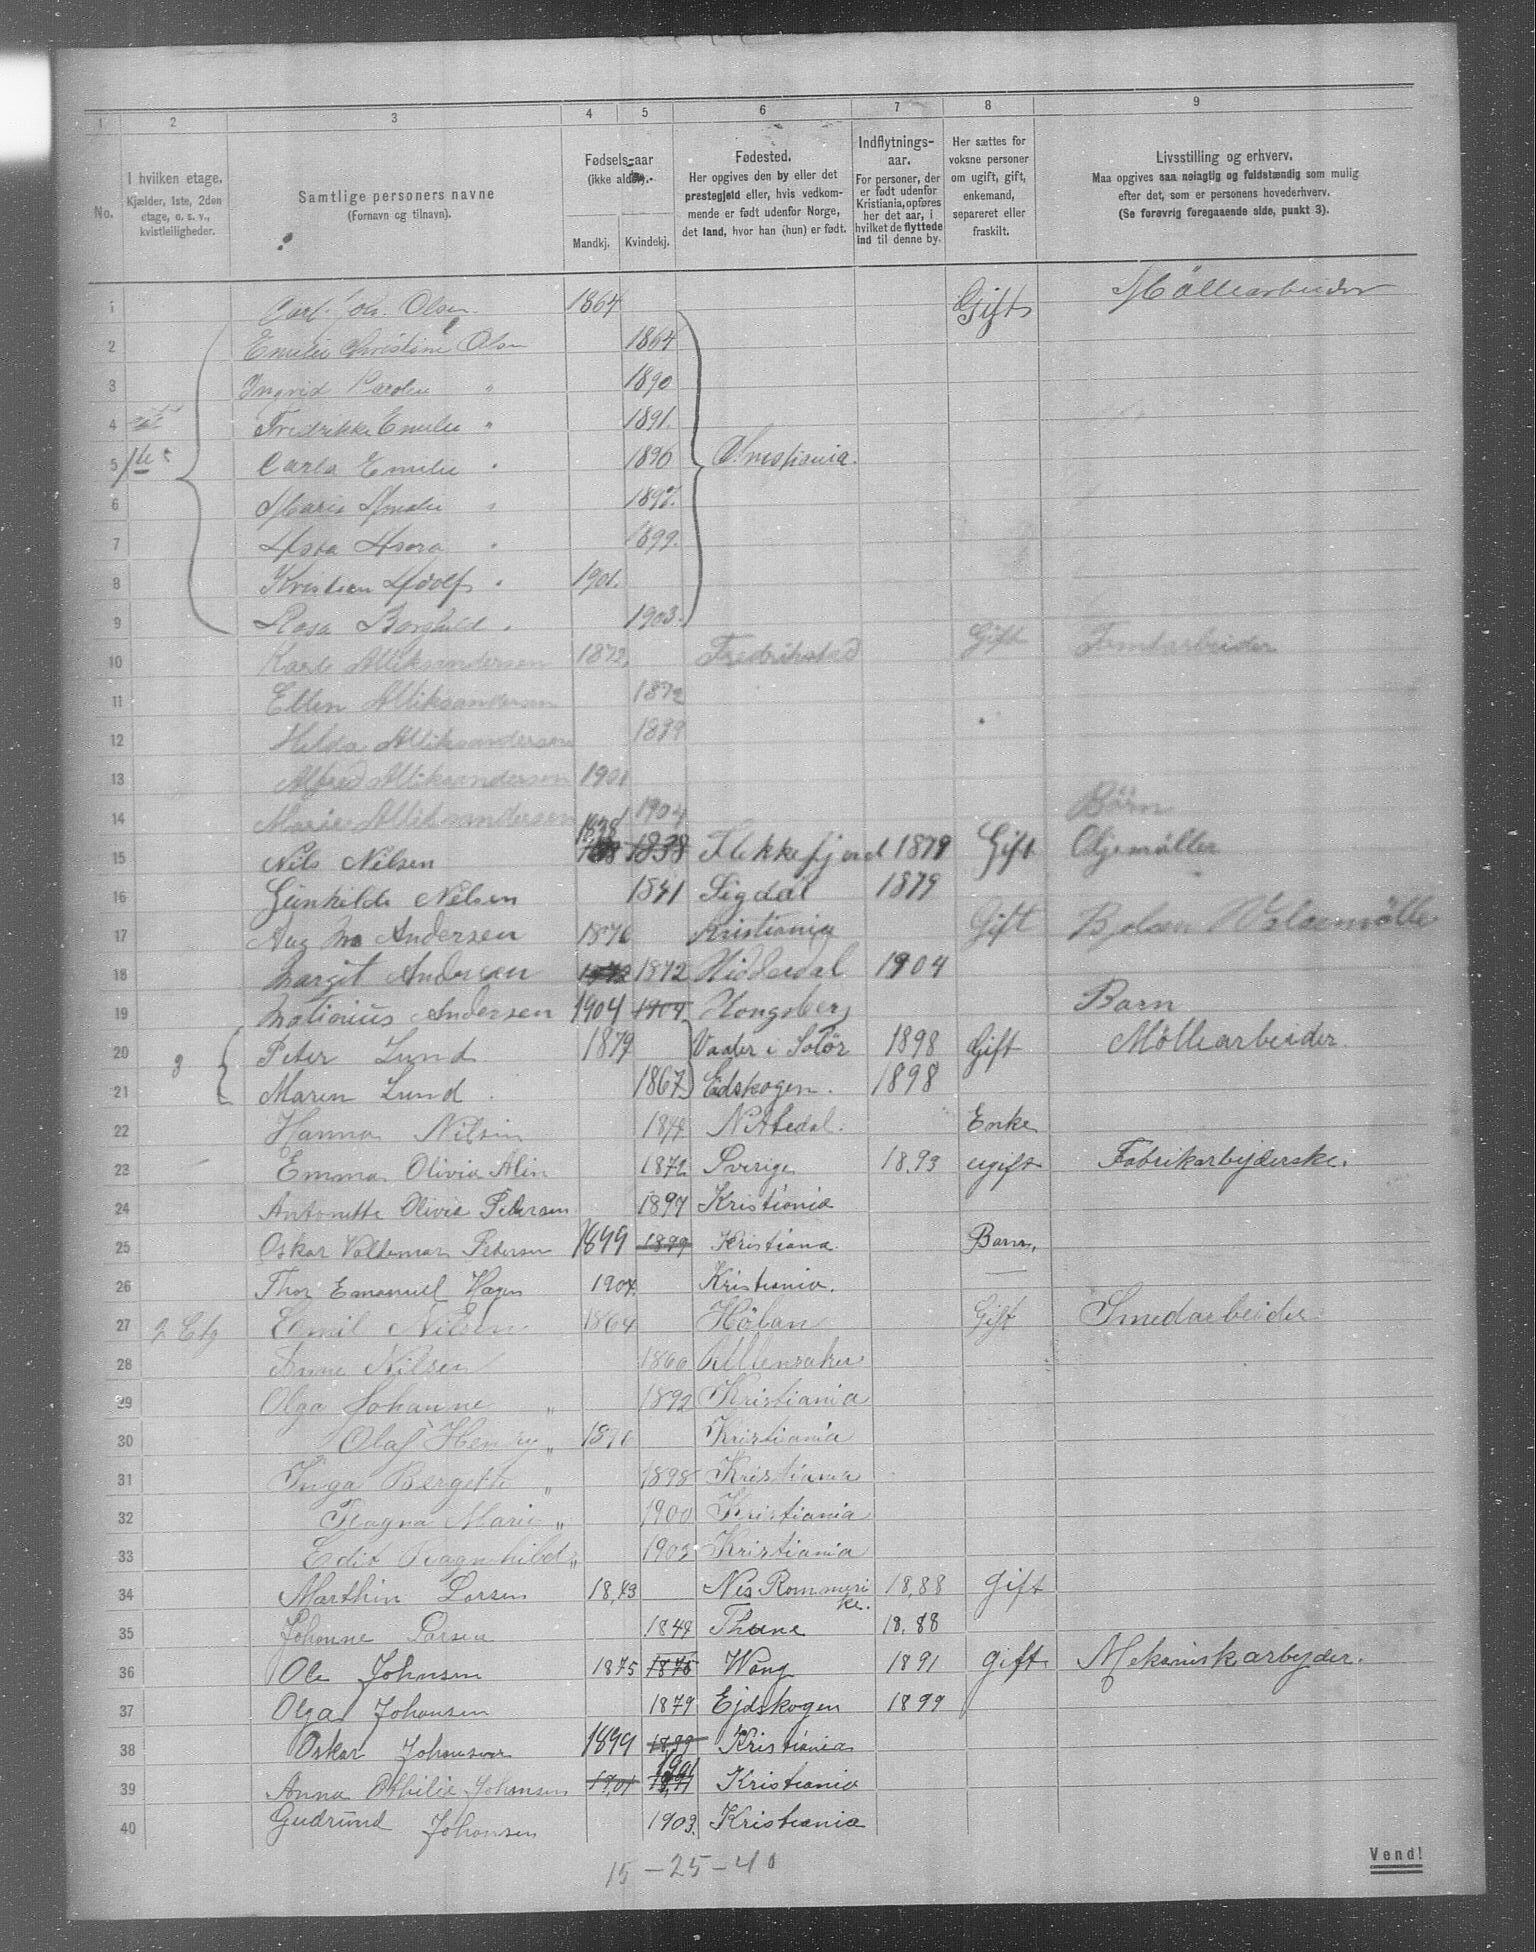 1 2 3 4 5 6 7 8 9
No.
I hvilken etage.
Kjælder, 1ste, 2den etage, o. s. v., kvistleiligheder.
Samtlige personers navne
(Fornavn og tilnavn).
Fødsels-aar
(ikke alder).
Mandkj. Kvindekj.
Fødested.
Her opgives den by eller det
prestegjeld eller, hvis vedkom-
mende er født udenfor Norge,
det land, hvor han (hun) er født.
Indflytnings-
aar.
For personer, der
er født udenfor
Kristiania, opføres
her det aar, i
hvilket de flyttede
ind til denne by.
Her sættes for
voksne personer
om ugift, gift,
enkemand,
separeret eller
fraskilt.
Livsstilling og erhverv.
Maa opgives saa nøiagtig og fuldstændig som mulig
efter det, som er personens hovederhverv.
(Se forøvrig foregaaende side, punkt 3).
1 Carl Joh. Olsen. 1864 Gift Möllearbeider
2 Emilie Christine Olsen 1864
3 Ingrid " 1890
4 Fredrikke Emilie " 1891.
5 1ste Carla Emilie " 1896 Christiania.
6 Marie Amalie " 1897.
7 Asta " 1899.
8 Kristian Adolf " 1901.
9 Rosa Borghild " 1903.
10 Karl Alliksandersen 1872, Fredrikstad Gift Tomtarbeider
11 Ellen Alliksandersen 1872
12 Hilda Alliksandersen 1899
13 Alfred Alliksandersen 1901
14 Marie Alliksandersen 1904 Börn
15 Nils Nilsen 1838 1838 Flekkefjord 1879 Gift Oljemöller
16 Gunhilde Nilsen 1841 Sigdal 1879
17 Aug Andersen 1876 Kristiania Gift Bjolsen Valsemölle
18 Margit Andersen 1872 1872 Hidderdal 1904
19 Mationius Andersen 1904 1904 Kongsberg Barn
20 Peter Lund 1879 Vaaler i Solör 1898 Gift Möllearbeider.
21 Maren Lund 1867 Eidskogen. 1898
22 Hanna Nilsen Nittedal. Enke
23 Emma Olivia Alin 1872 Sverige 1893 ugift Fabrikarbejderske.
24 Antonette Olivia Petersen 1897 Kristiania
25 Oskar Valdemar Petersen 1899 1899 Kristiana. Barn,
26 Thor Emanuel Hagen 1904. Kristiania.
27 2 Etg Emil Nilsen 1864 Höland Gift Smedarbeider
28 Anne Nilsen 1866 Ullensaker
29 Olga Johanne " 1892 Kristiania
30 Olaf Henry " 1896 Kristiania
31 Inga Bergette " 1898 Kristiania
32 Ragna Marie " 1900 Kristiania
33 Edit Ragnhild " 1903 Kristiania
34 Marthin Larsen 1843 Nes Rommeri 1888 gift
ke.
35 Johanne Larsen 1849 Thune 1888
36 Ole Johnsen 1875 1875 Wang 1891 gift Mekaniskarbejder.
37 Olga Johansen 1879 Ejdskogen 1899
38 Oskar Johansen 1899 1899 Kristiania
39 Anna Othilie Johansen 1901 1901 Kristiania
40 Gudrund Johansen 1903. Kristiania
15 - 25 - 40
Vend!